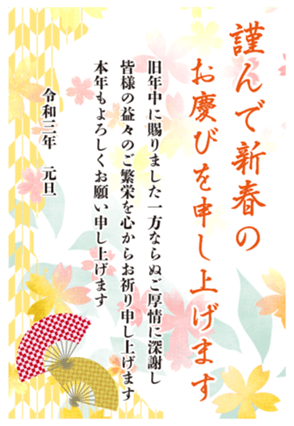 謹んで新春の
お慶びを申し上げます
旧年中に賜りました一方ならぬご厚情に深謝し
皆様の益々のご繁栄を心からお祈り申し上げます
本年もよろしくお願い申し上げます
令和三年 元旦